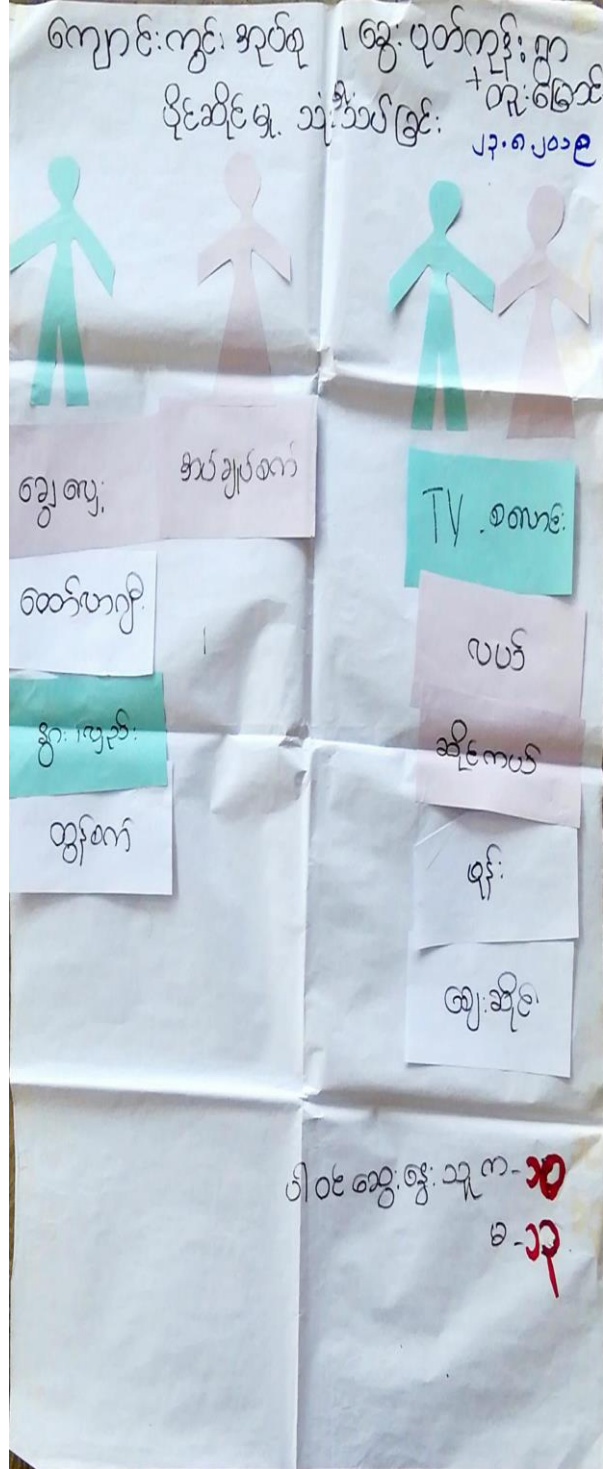 ကျောင်းကွင်း အုပ်စု ၊ ခွေးပုတ်ကုန်းရွာ
+ တူးမြောင်
ပိုင်ဆိုင်မှု့ သုံးသပ်ခြင်း
၂၃.၈.၂၀၁၉
ချွေလှေ့
အပ်ချုပ်စက်
ထော်လာဂျီ
နွား၊ လှည်း
ထွန်စက်
TV . စလောင်း
လယ်
ဆိုင်ကယ်
ဖုန်း
ဈေးဆိုင်
ပါဝင်ဆွေးနွေးသူ က -
မ - ၁၃